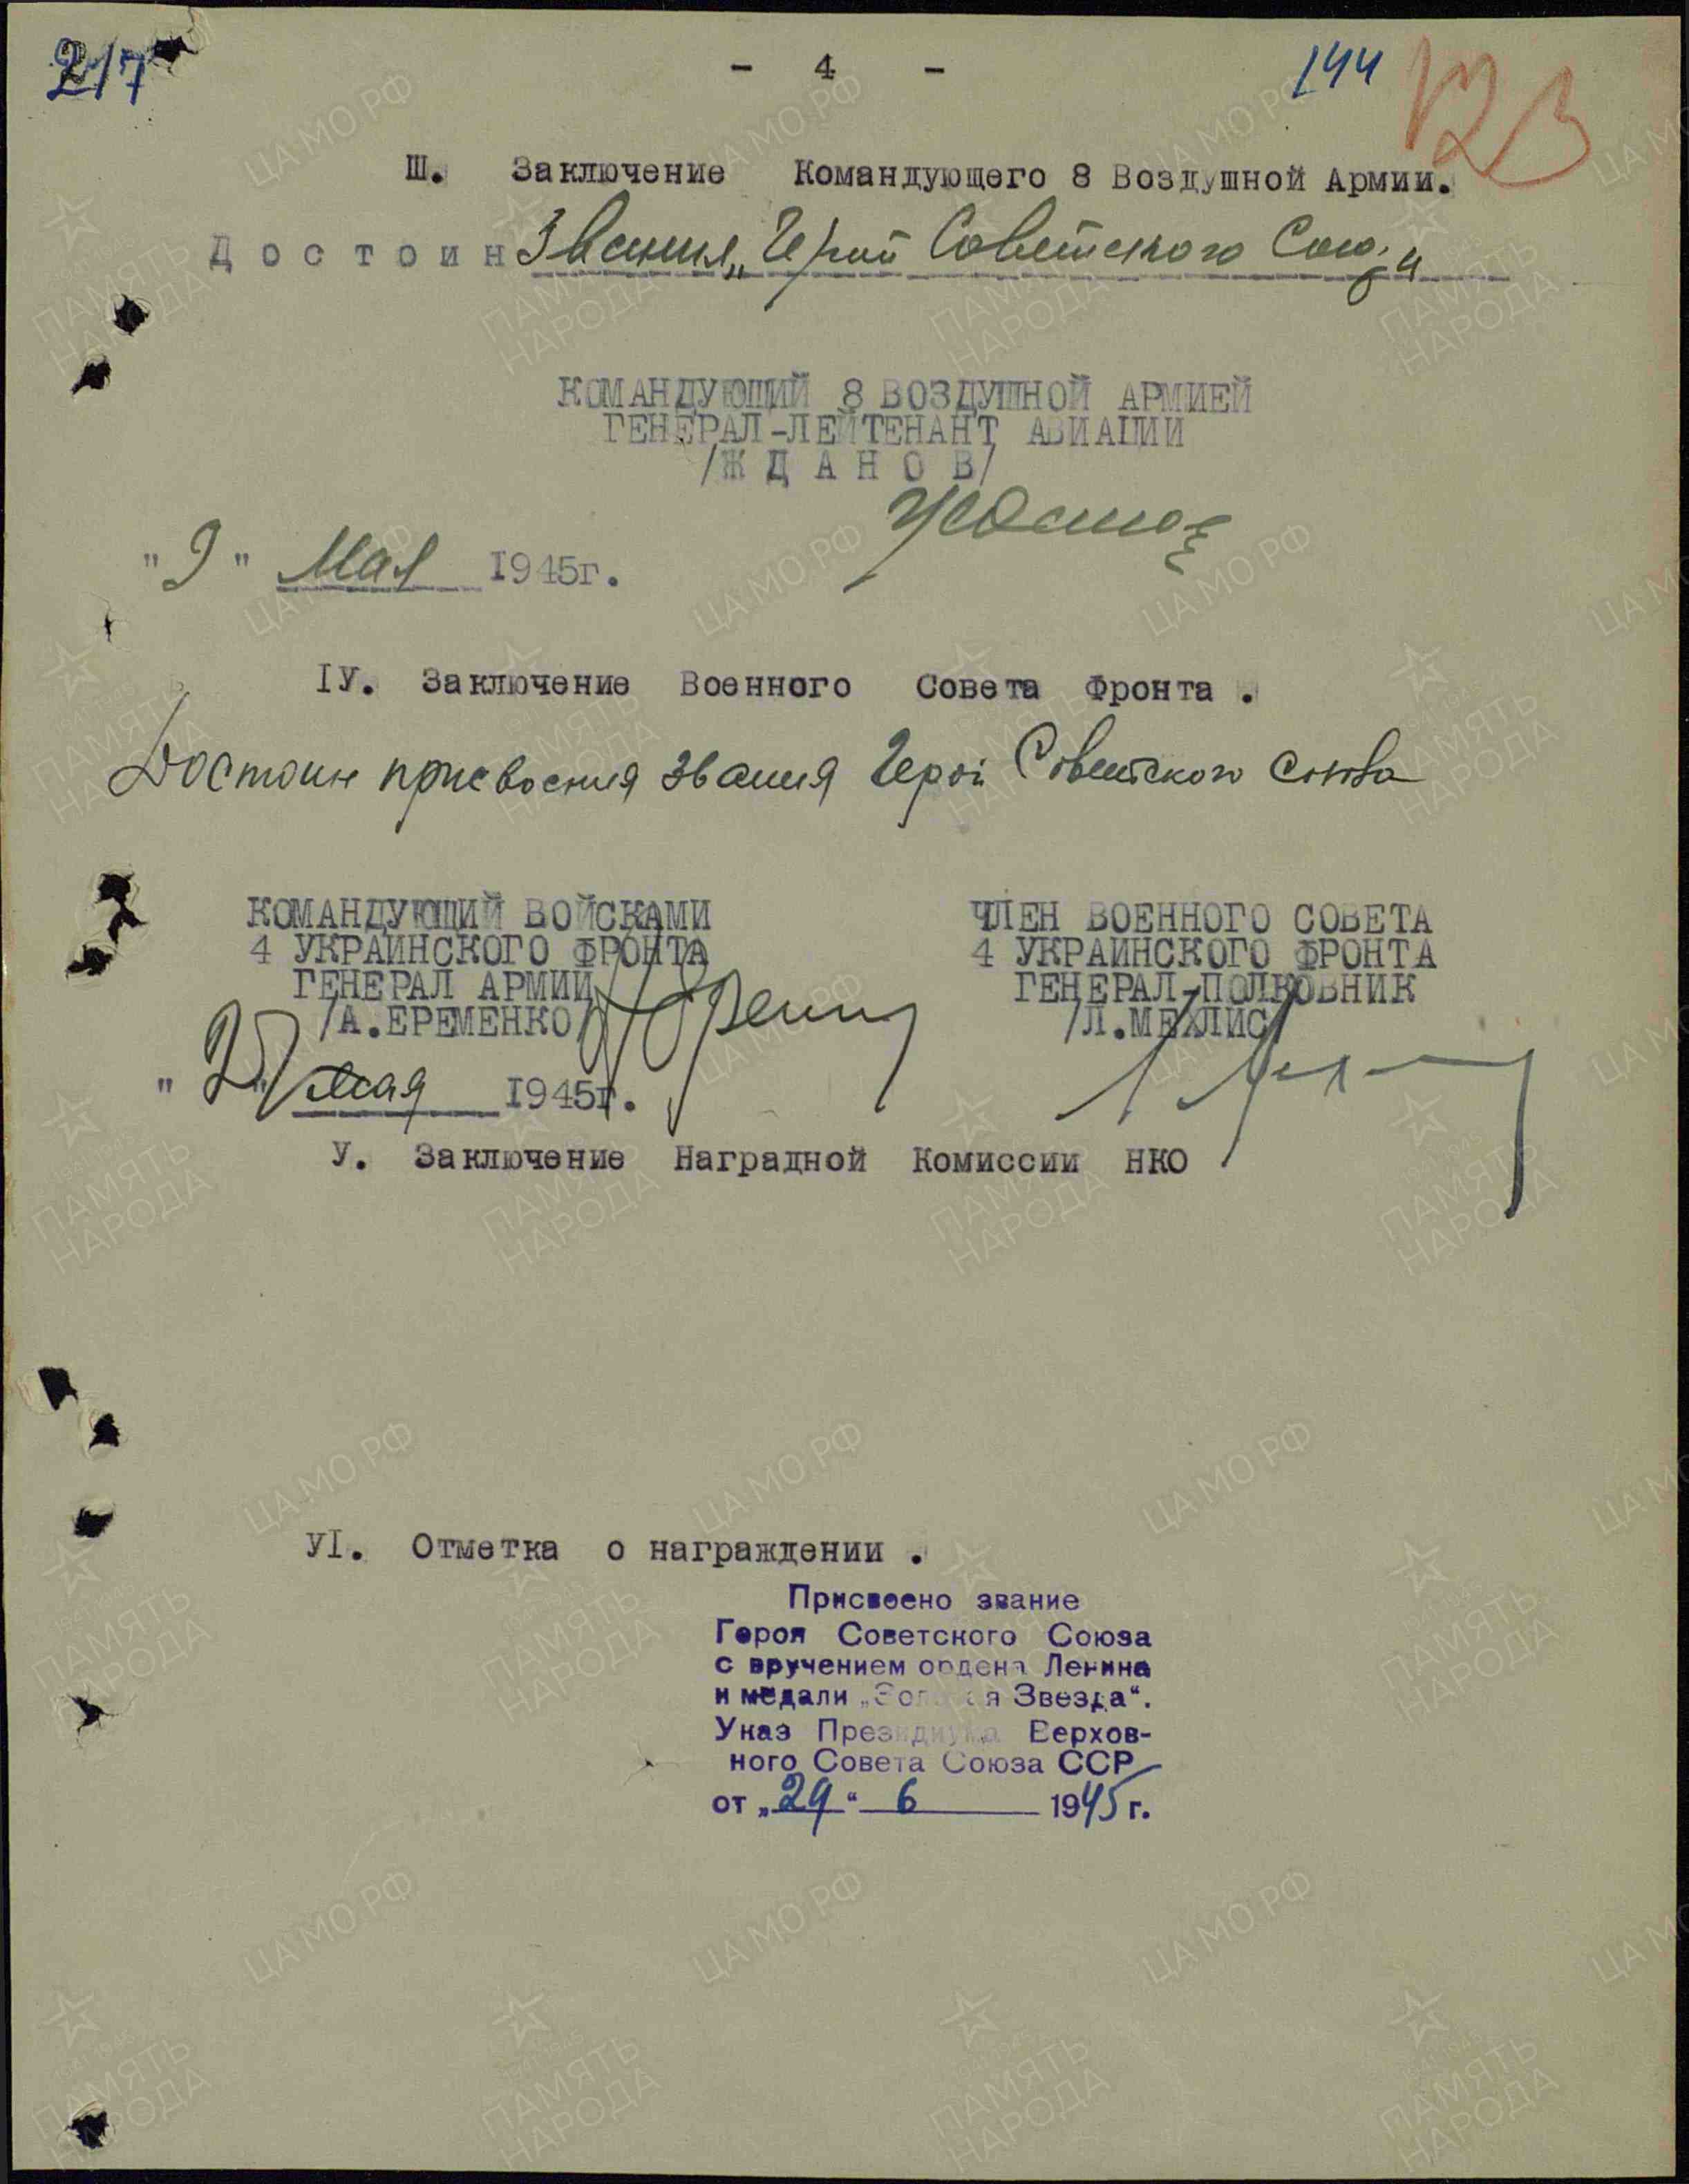 217
- 4 -
144
Ш. Заключение Командующего 8 Воздушной Армии.
Достоин звания „Герой Советского Союза"
КОМАНДУЮЩИЙ 8 ВОЗДУШНОЙ АРМИЕЙ
ГЕНЕРАЛ-ЛЕЙТЕНАНТ АВИАЦИИ
/ЖДАНОВ/
"9" Мая 1945г.
IУ. Заключение Военного Совета Фронта.
Достоин присвоения звания Герой Советского Союза
КОМАНДУЮЩИЙ ВОЙСКАМИ
4 УКРАИНСКОГО ФРОНТА
ГЕНЕРАЛ АРМИИ
/А.ЕРЕМЕНКО/
ЧЛЕН ВОЕННОГО СОВЕТА
4 УКРАИНСКОГО ФРОНТА
ГЕНЕРАЛ-ПОЛКОВНИК
/Л.МЕХЛИС/
мая 1945г.
У. Заключение Наградной Комиссии НКО
УI. Отметка о награждении.
Присвоено звание
Героя Советского Союза
с вручением ордена Ленина
и медали „Золотая Звезда“.
Указ Президиума Верхов-
ного Совета Союза ССР
от „29“ 6 1945 г.
ЦАМО РФ
ПАМЯТЬ НАРОДА